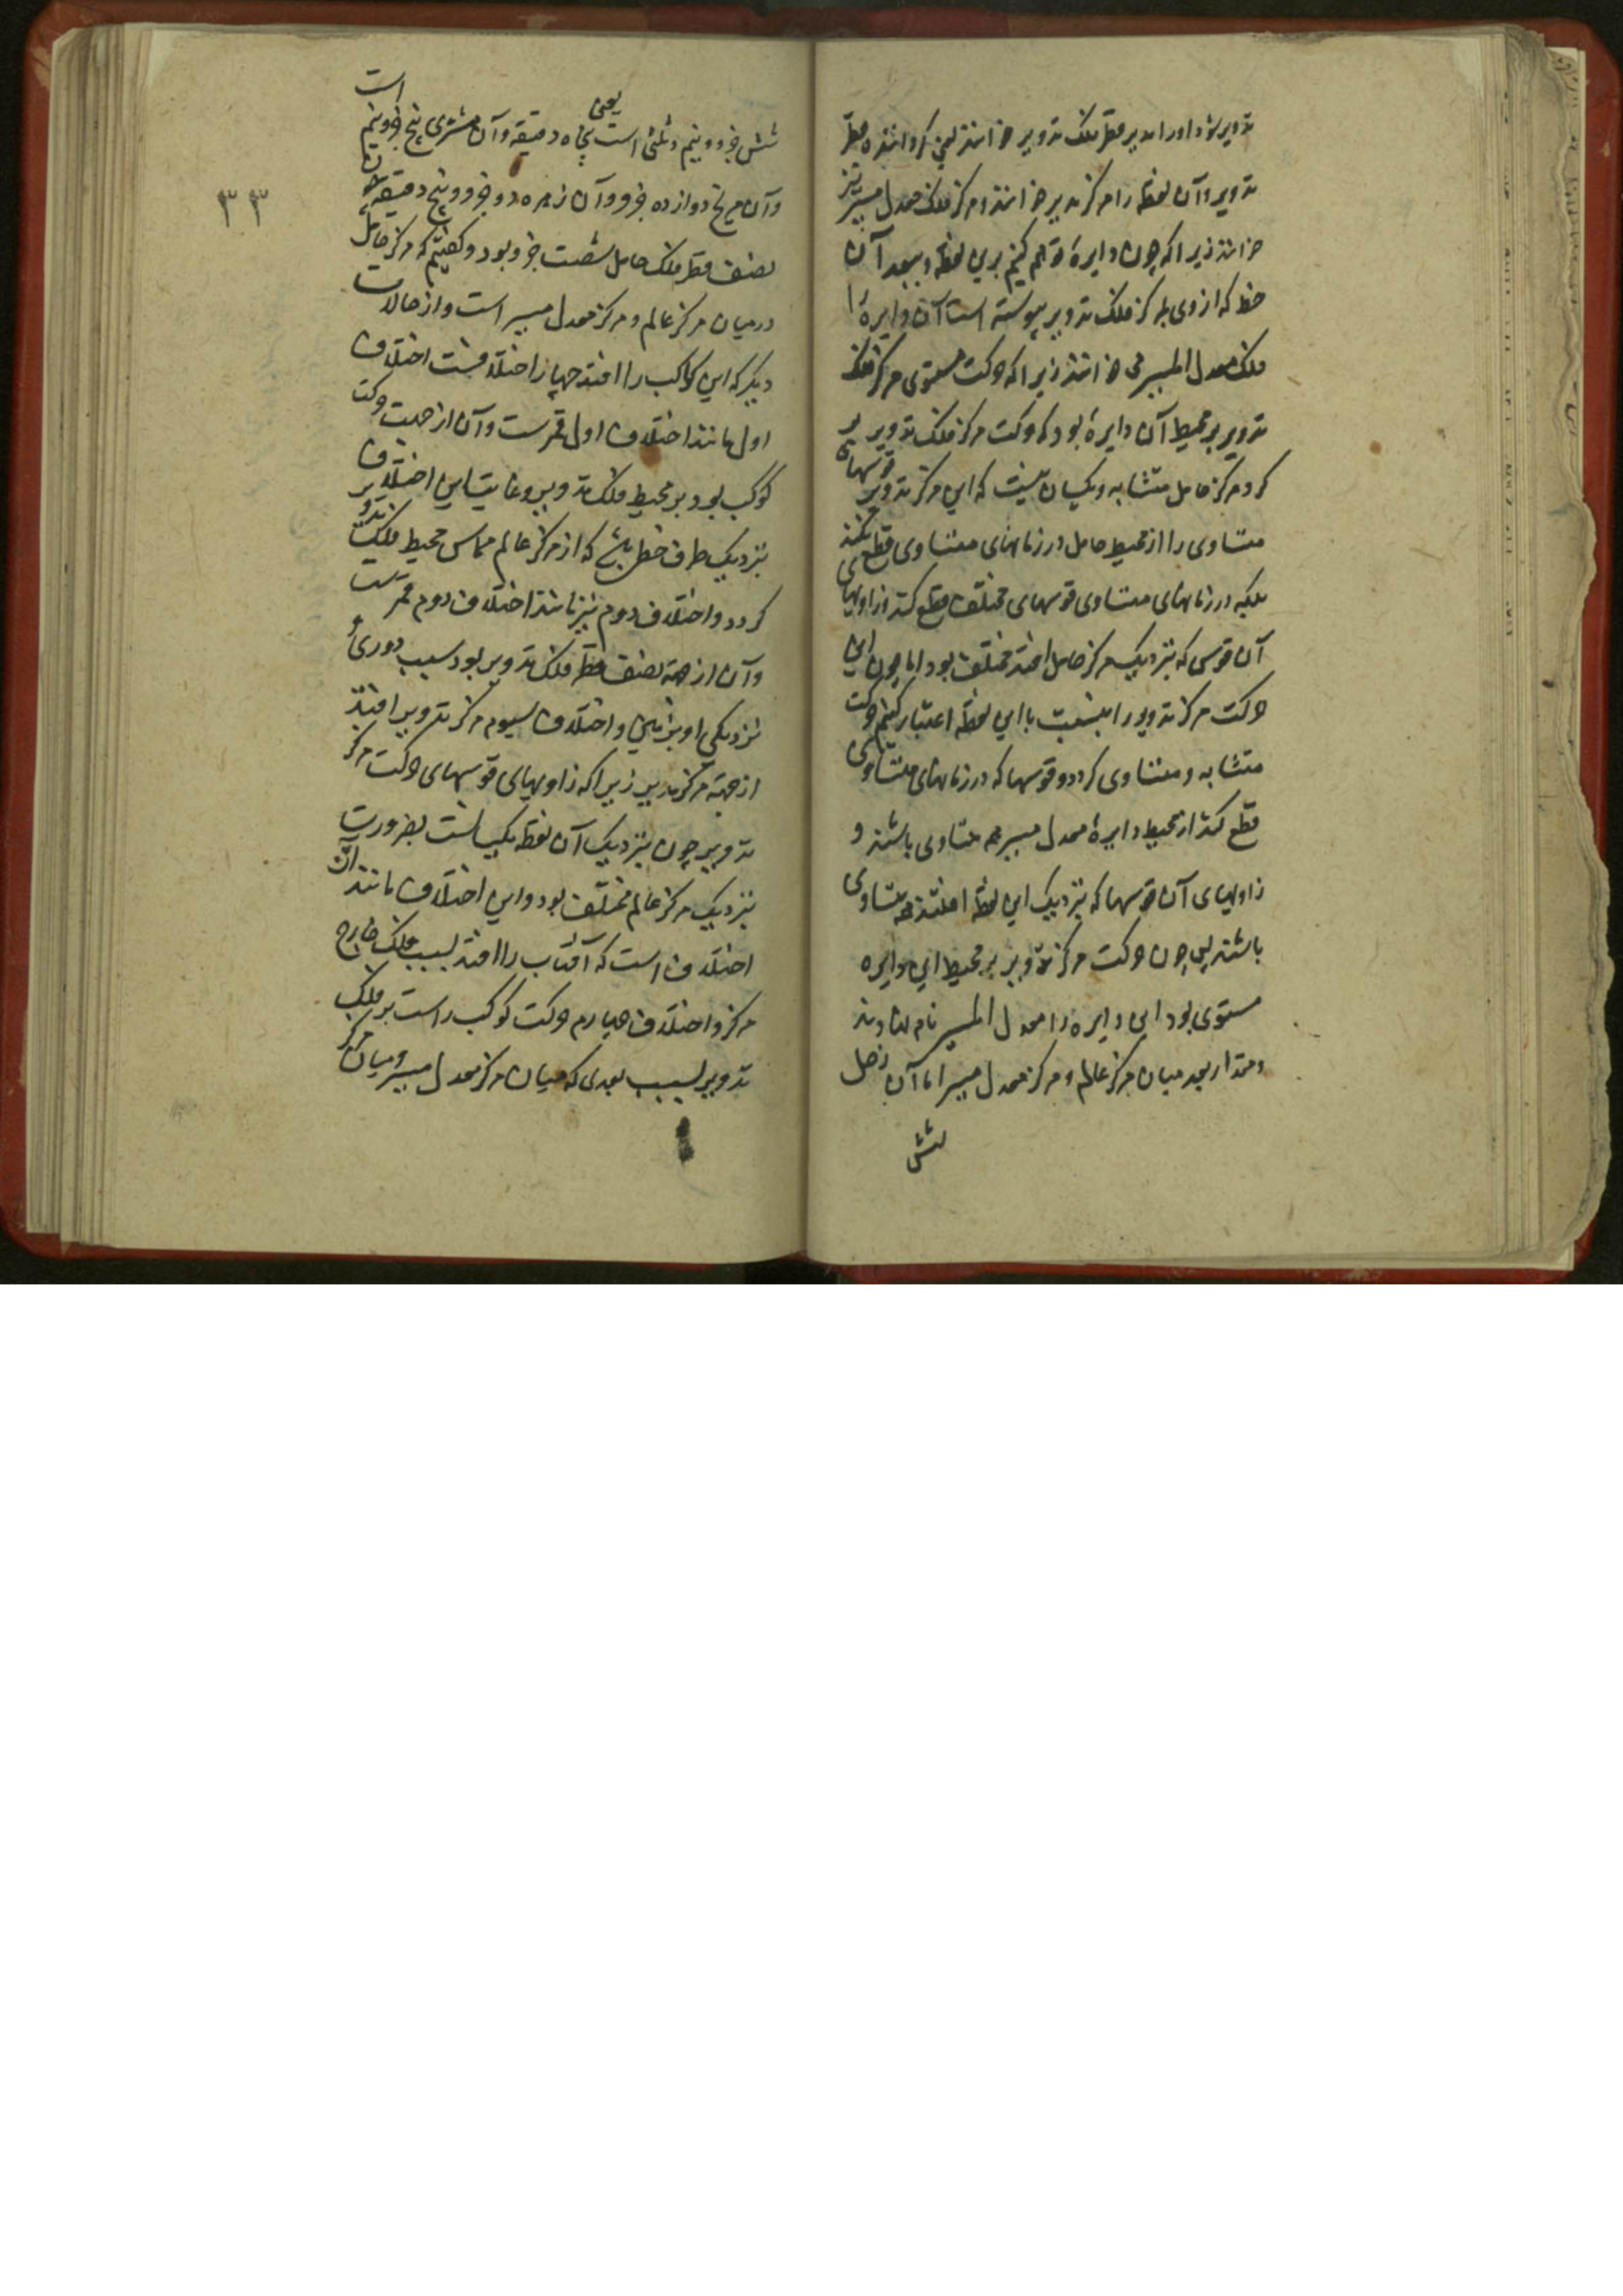 تدویر بود اورا مدیر قطر فلک تدویر خوانند یعنی گرداننده قطر
تدویر و آن نقطه را مرکز مدیر خوانند و مرکز فلک معدل مسیر نیز
خوانند زیرا که چون دایرهٔ توهم کنیم برین نقطه و ببعد آن
خط که از وی بمرکز فلک تدویر پیوسته است آن دایره را
فلک معدل المسیر می خوانند زیرا که حرکت مستوی مرکز فلک
تدویر بر محیط آن دایرهٔ بود که حرکت مرکز فلک تدویر بر
کرد مرکز حامل متشابه و یکسان نیست که این مرکز تدویر قوسهای
متساوی را از محیط حامل در زمانهای متساوی قطع نکند
بلکه در زمانهای متساوی قوسهای مختلف قطع کند و زاویهای
آن قوسی که بنزدیک مرکز حامل افتد مختلف بود اما چون این
حرکت مرکز تدویر را بنسبت با این نقطه اعتبار کنیم حرکت
متشابه و متساوی کردد و قوسها که در زمانهای متساوی
قطع کند از محیط دایرهٔ معدل مسیر هم متساوی باشند و
زاویهای آن قوسها که بنزدیک این نقطه افتند همه متساوی
باشند پس چون حرکت مرکز تدویر بر محیط این دایره
مستوی بود این دایره را معدل المسیر نام نهادند
و مقدار بعد میان مرکز عالم و مرکز معدل مسیر اما آن زحل
شش
۳۳
شش جزو و نیم و ثلثی است یعنی پنجاه دقیقه و آن مشتری پنج جزو و نیم است
و آن مریخ دوازده جزو و آن زهره دو جزو و پنج دقیقه
نصف قطر فلک حامل شصت جزو بود و کفتیم که مرکز حامل
در میان مرکز عالم و مرکز معدل مسیر است و از حالات
دیکر که این کواکب را افتد چهار اختلافست اختلاف
اول مانند اختلاف اول قمرست و آن از جهت حرکت
کوکب بود بر محیط فلک تدویر و غایت این اختلاف
بنزدیک طرف خطی باشد که از مرکز عالم مماس محیط فلک تدویر
کردد و اختلاف دوم نیز مانند اختلاف دوم قمرست
و آن از جهة نصف قطر فلک تدویر بود سبب دوری
نزدیکی او بزمین و اختلاف سیوم مرکز تدویر افتد
از جهة مرکز مدیر زیرا که زاویهای قوسهای حرکت مرکز
تدویر چون بنزدیک آن نقطه یکسانست بضرورت
بنزدیک مرکز عالم مختلف بود و این اختلاف مانند آن
اختلاف است که آفتاب را افتد بسبب فلک خارج
مرکز و اختلاف چهارم حرکت کوکب راست بر فلک
تدویر بسبب بعدی که میان مرکز معدل مسیر و میان مرکز